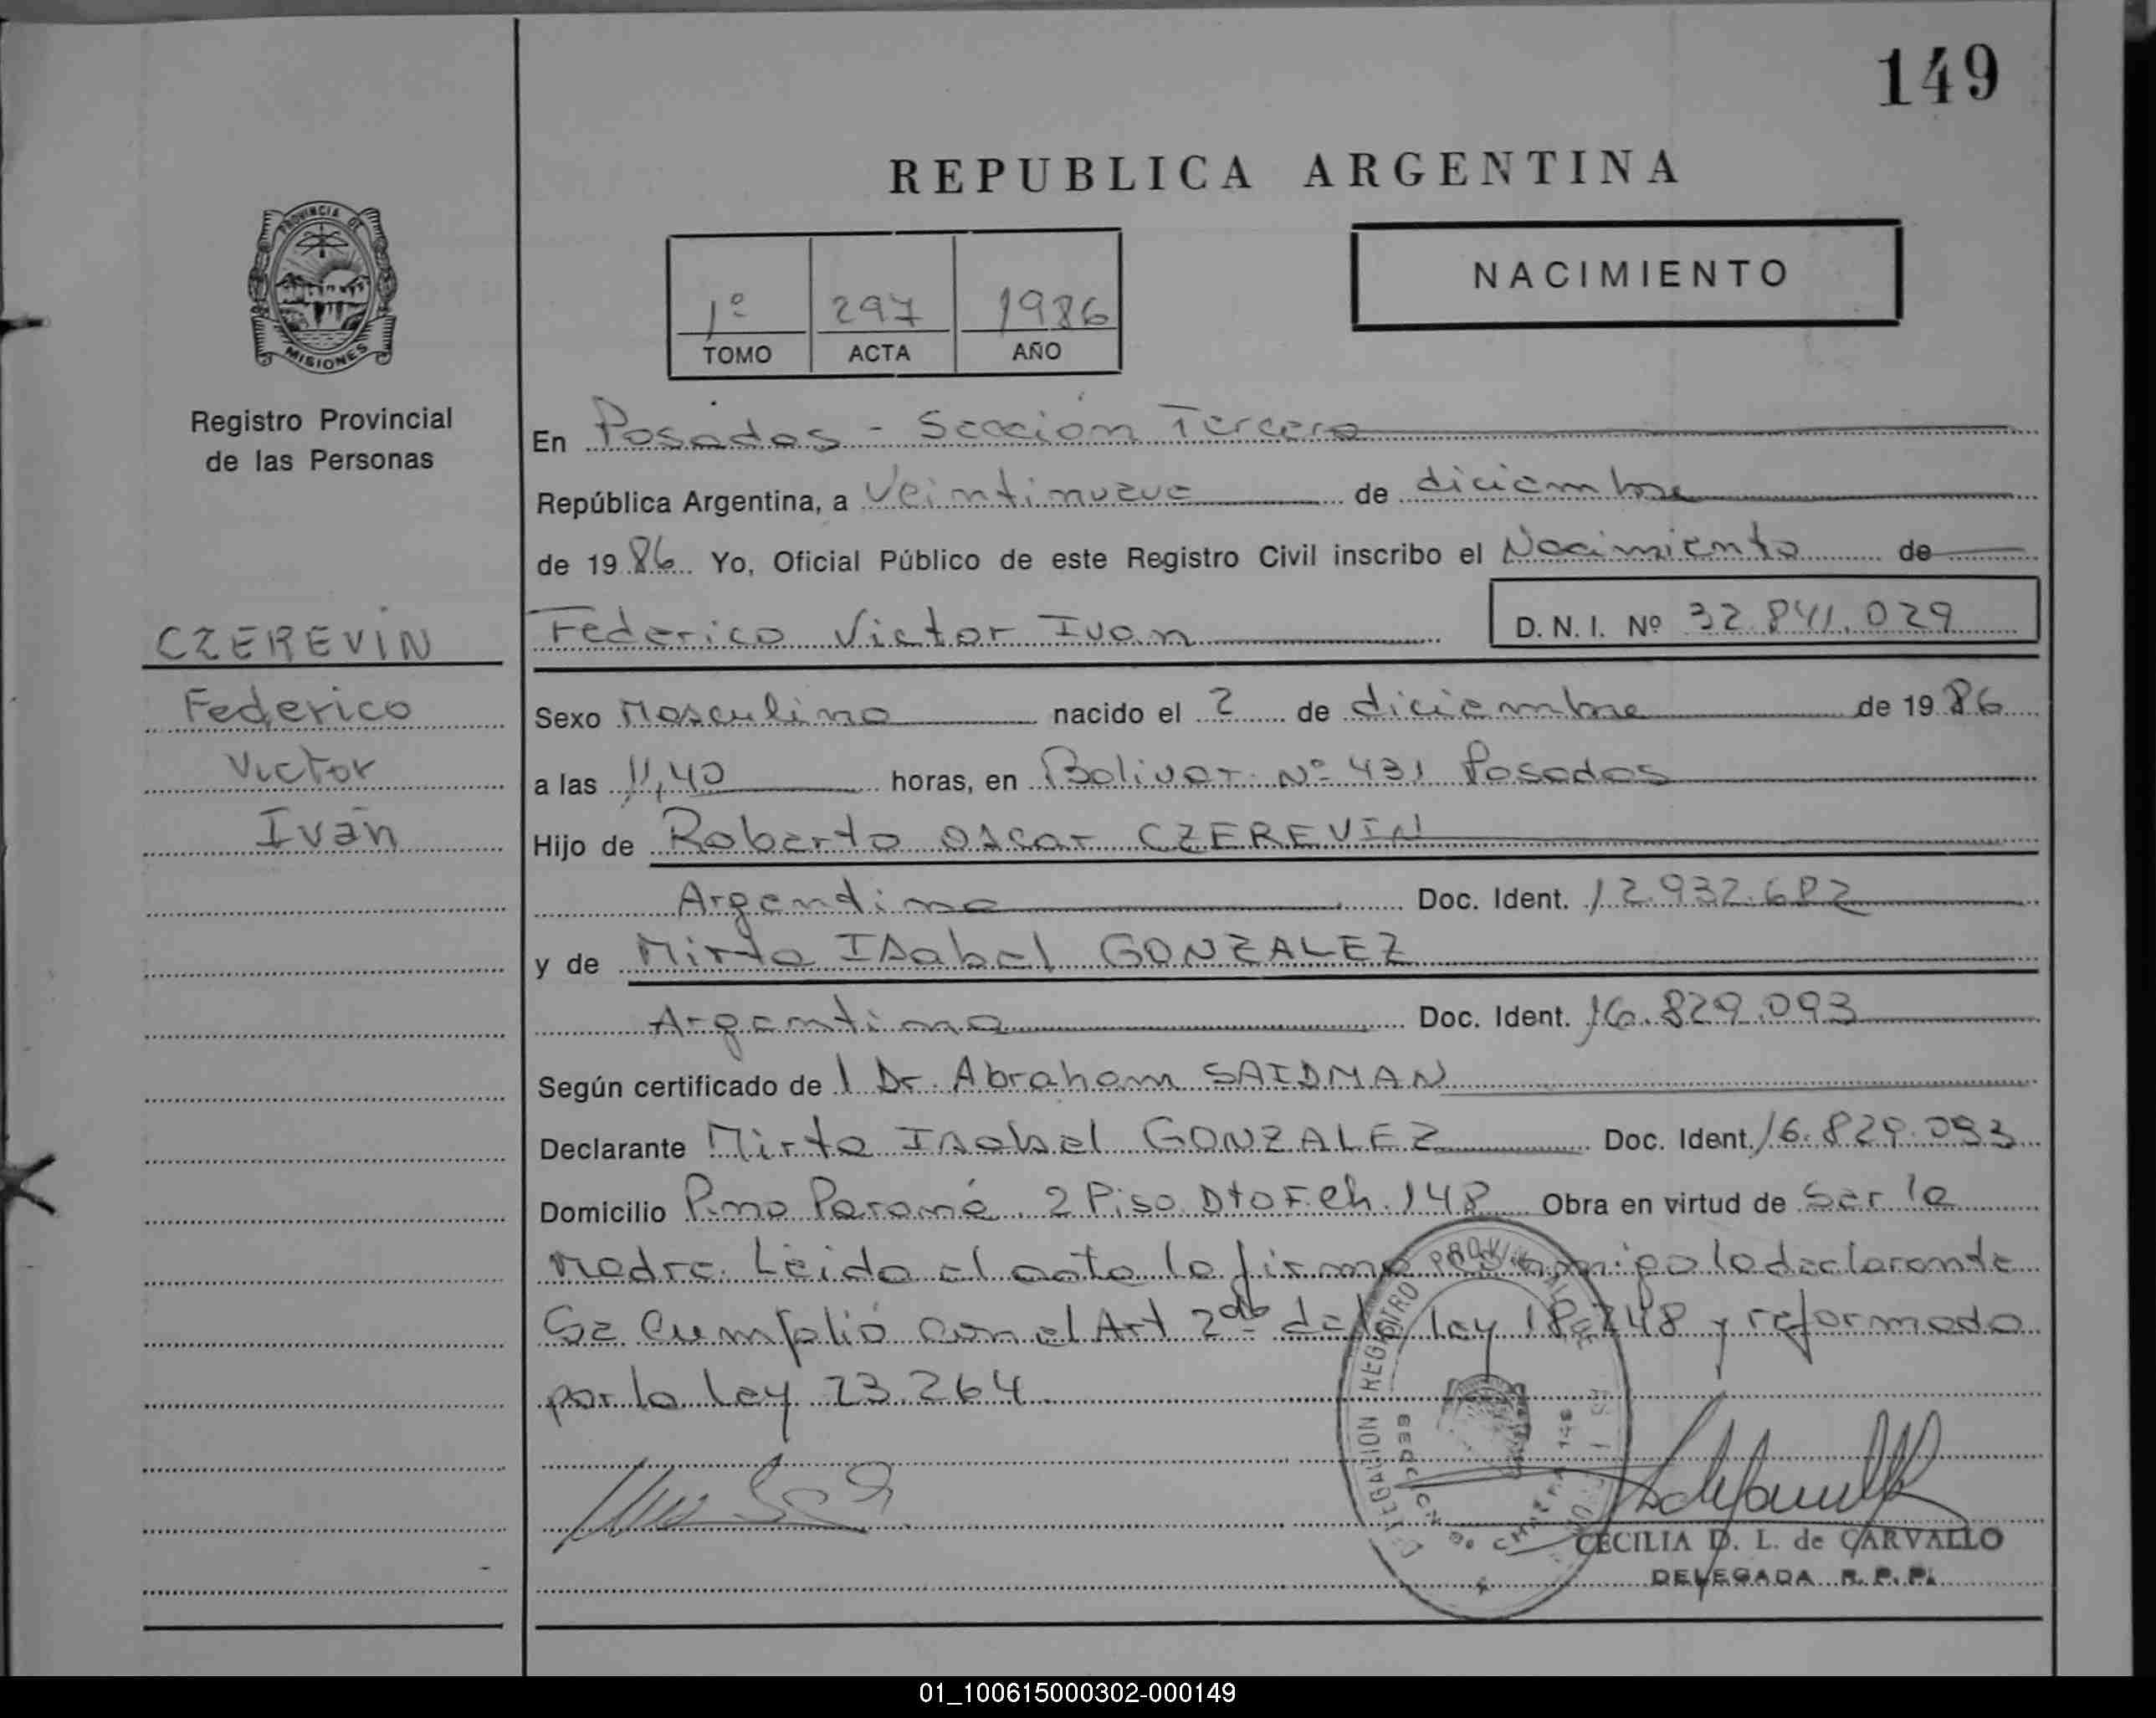 149
REPUBLICA ARGENTINA
PROVINCIA DE
MISIONES
Registro Provincial
de las Personas
1º 297 1986
TOMO ACTA AÑO
NACIMIENTO
CZEREVIN
Federico
Victor
Iván
En Posadas - Sección Tercera
República Argentina, a Veintinueve de diciembre
de 1986 Yo, Oficial Público de este Registro Civil inscribo el Nacimiento de
Federico Victor Ivan D. N. I. Nº 32.841.029
Sexo Masculino nacido el 2 de diciembre de 1986
a las 11,40 horas, en Bolivar Nº 431 Posadas
Hijo de Roberto Oscar CZEREVIN
Argentino Doc. Ident. 12.932.682
y de Mirta Isabel GONZALEZ
Argentina Doc. Ident. 16.829.093
Según certificado de l Dr. Abraham SAIDMAN
Declarante Mirta Isabel GONZALEZ Doc. Ident. 16.829.093
Domicilio Paraná 2 Piso Dto F. Ch. 148 Obra en virtud de Ser la
Madre. Leida el acta la firma conmigo la declarante
Se Cumplió con el Art 2do de la ley 18.248 y reformada
por la ley 23.264
CECILIA D. L. de CARVALLO
DELEGADA R. P. P.
01_100615000302-000149